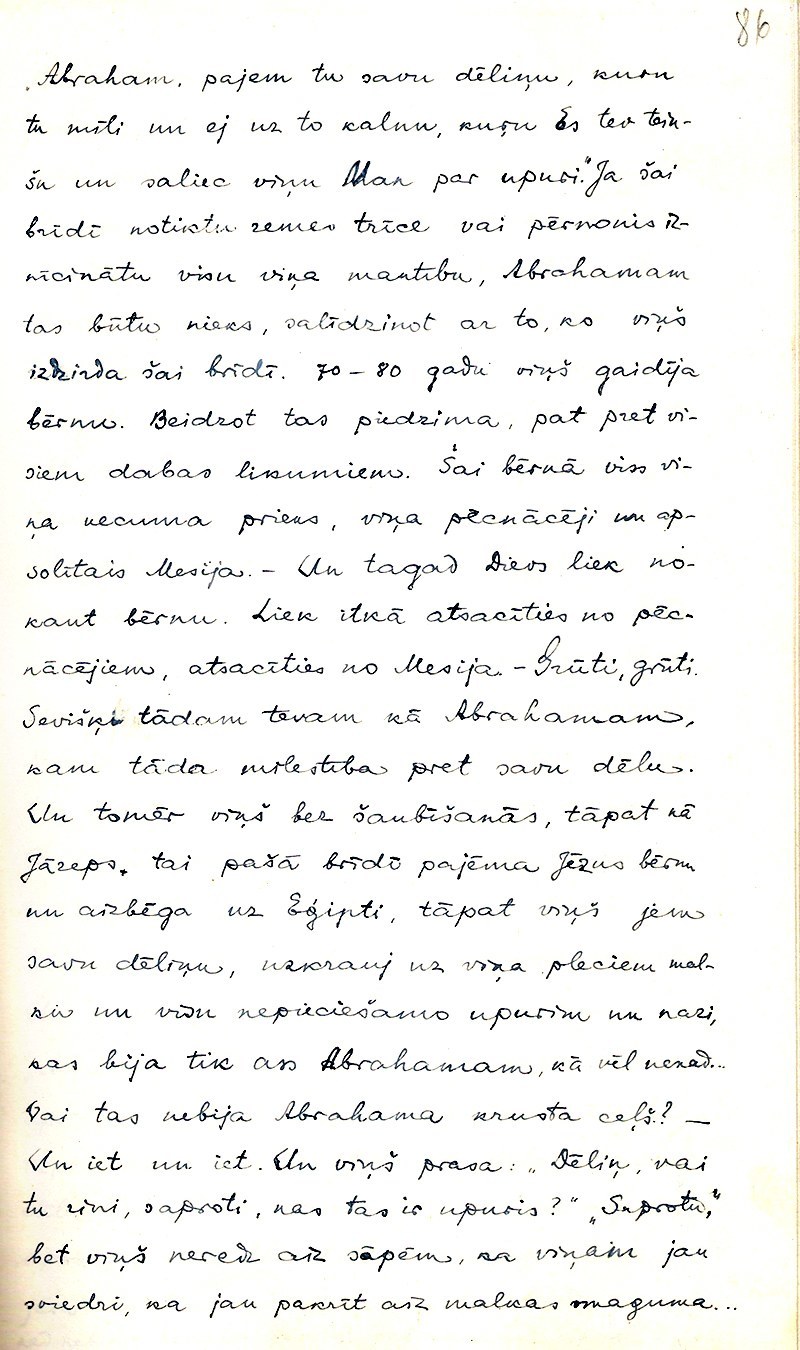 86
„Abraham, pajem tu savu dēliņu, kuŗu
tu mīli un ej uz to kalnu, kuŗu Es tev teik-
šu un saliec viņu Man par upuri.” Ja šai
brīdī notiktu zemes trīce vai pērkonis iz-
nīcinātu visu viņa mantību, Abrahamam
tas būtu nieks, salīdzinot ar to, ko viņš
izdzirda šai brīdī. 70 – 80 gadu viņš gaidīja
bērnu. Beidzot tas piedzima, pat pret vi-
siem dabas likumiem. Šai bērnā viss vi-
ņa vecuma prieks, viņa pēcnācēji un ap-
solītais Mesija. – Un tagad Dievs liek no-
kaut bērnu. Liek itkā atsacīties no pēc-
nācējiem, atsacīties no Mesija. – Grūti, grūti.
Sevišķi tādam tevam kā Abrahamam,
kam tāda mīlestība pret savu dēlu.
Un tomēr viņš bez šaubīšanās, tāpat kā
Jāzeps, tai pašā brīdī pajēma Jēzus bērnu
un aizbēga uz Eģipti, tāpat viņš jem
savu dēliņu, uzkrauj uz viņa pleciem mal-
ku un visu nepieciešamo upurim un nazi,
kas bija tik ass Abrahamam, kā vēl nekad...
Vai tas nebija Abrahama krusta ceļš? –
Un iet un iet. Un viņš prasa: „Dēliņ, vai
tu zini, saproti, kas tas ir upuris?” „Saprotu,”
bet viņš neredz aiz sāpēm, ka viņam jau
sviedri, ka jau pakrīt aiz malkas smaguma...